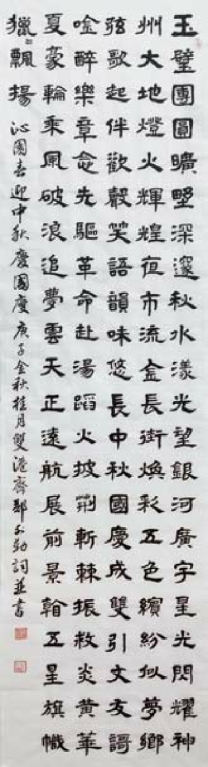 玉璧團圓曠墅深邃秋水漾光望銀河廣宇星光閃耀神
州大地燈火輝煌夜市流金長街煥彩五色繽紛似夢鄉
弦歌起伴歡聲笑語韻味悠長中秋國慶成雙引文友謌
唫醉樂章念先驅革命赴湯蹈火披荊斬棘振救炎黃華
夏豪輪乘風破浪追夢雲天正遠航展前景翰五星旗幟
獵〻飄揚 沁園春迎中秋慶國慶庚子金秋桂月雙港齋詞並書